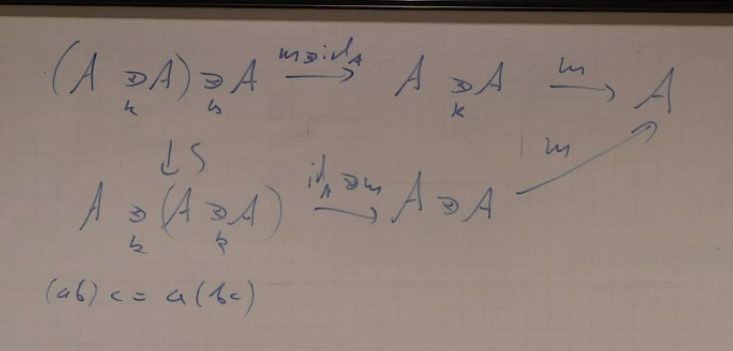 (A ⊗ₖ A) ⊗ₖ A —m⊗id_A→ A ⊗ₖ A —m→ A
↓ S m
A ⊗ₖ (A ⊗ₖ A) —id_A⊗m→ A ⊗ A
(ab)c = a(bc)